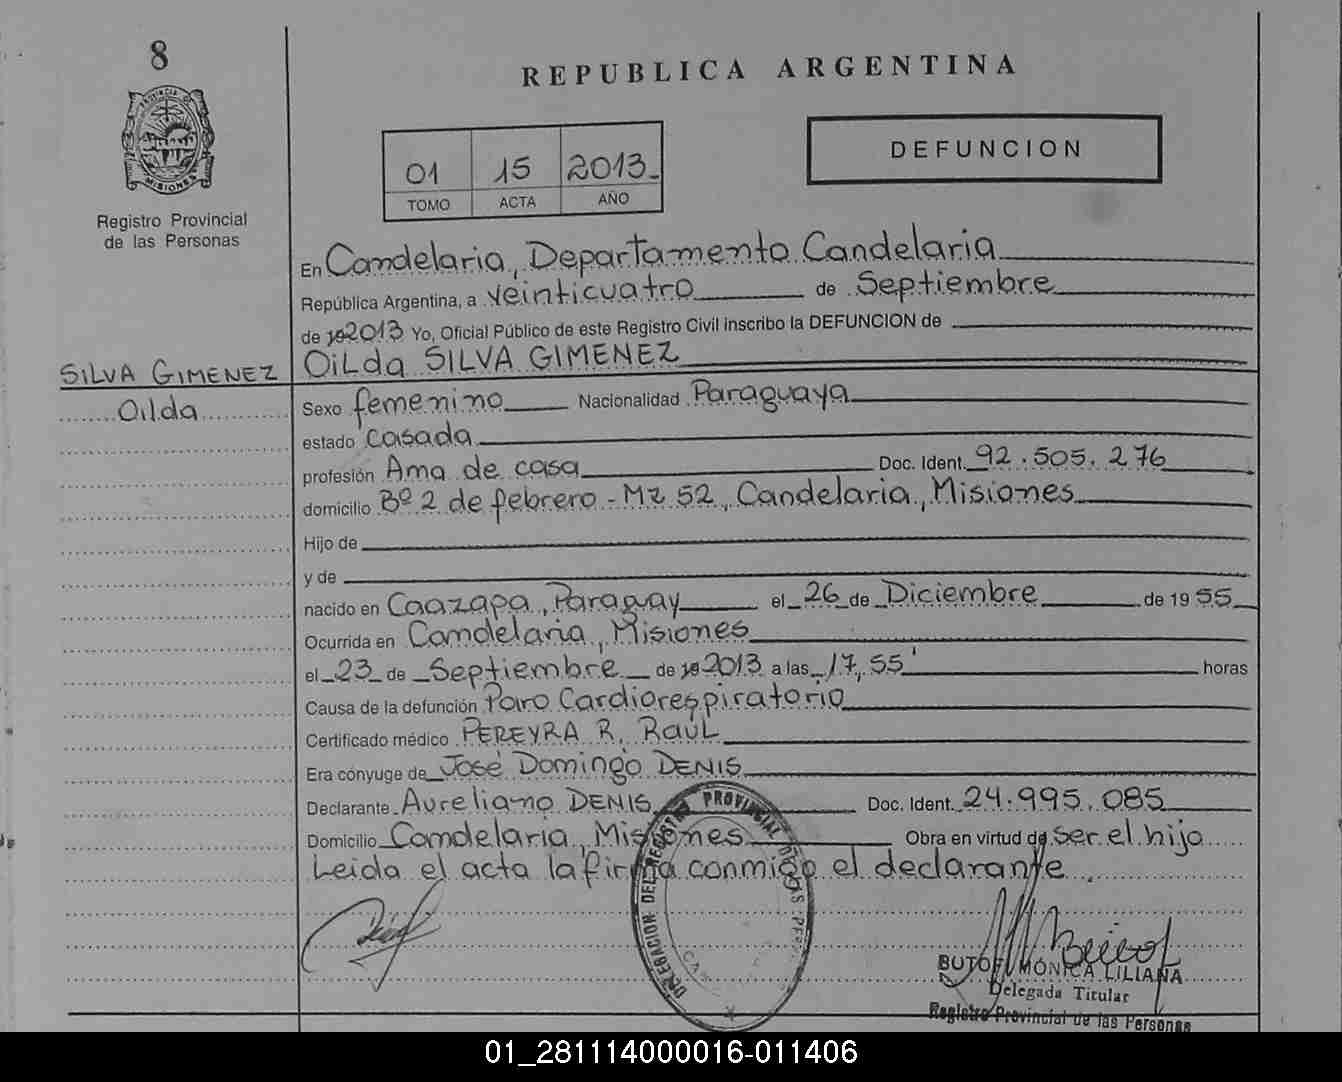 8
PROVINCIA DE
MISIONES
Registro Provincial
de las Personas
REPUBLICA ARGENTINA
01 15 2013
TOMO ACTA AÑO
DEFUNCION
En Candelaria, Departamento Candelaria
República Argentina, a veinticuatro de Septiembre
de 192013 Yo, Oficial Público de este Registro Civil inscribo la DEFUNCION de
SILVA GIMENEZ
Oilda
Oilda SILVA GIMENEZ
Sexo femenino Nacionalidad Paraguaya
estado casada
profesión Ama de casa Doc. Ident. 92.505.276
domicilio Bº 2 de febrero - Mz 52, Candelaria, Misiones
Hijo de
y de
nacido en Caazapa, Paraguay el 26 de Diciembre de 1955
Ocurrida en Candelaria, Misiones
el 23 de Septiembre de 192013 a las 17,55' horas
Causa de la defunción Paro Cardiorespiratorio
Certificado médico PEREYRA R. Raúl
Era cónyuge de José Domingo DENIS
Declarante Aureliano DENIS Doc. Ident. 24.995.085
Domicilio Candelaria, Misiones Obra en virtud de ser el hijo
Leida el acta la firma conmigo el declarante
DELEGACION DEL REGISTRO PROVINCIAL DE LAS PERS
BUTOF MÓNICA LILIANA
Delegada Titular
Registro Provincial de las Personas
01_281114000016-011406